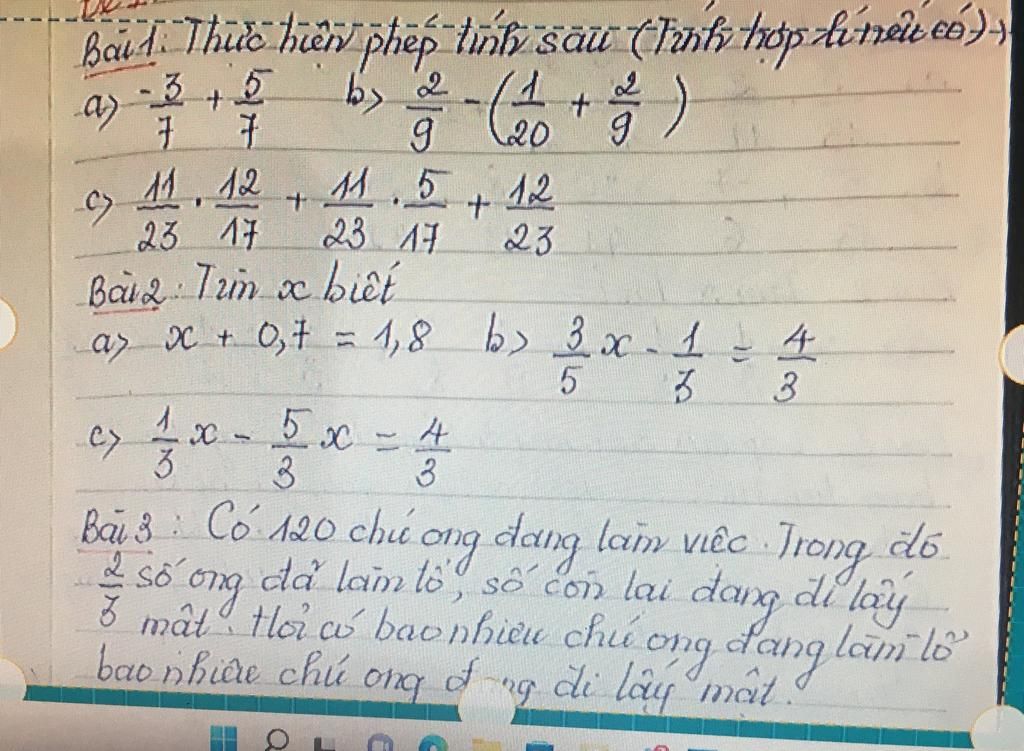 Bài 1: Thực hiện phép tính sau (Tính hợp lí nếu có)
a) -3/7 + 5/7 b) 2/9 - (1/20 + 2/9)
c) 11/23 . 12/17 + 11/23 . 5/17 + 12/23
Bài 2: Tìm x biết
a) x + 0,7 = 1,8 b) 3/5 x - 1/3 = 4/3
c) 1/3 x - 5/3 x = 4/3
Bài 3: Có 120 chú ong đang làm việc. Trong đó
2/3 số ong đã làm tổ, số còn lại đang đi lấy
mật. Hỏi có bao nhiêu chú ong đang làm tổ
bao nhiêu chú ong đang đi lấy mật.